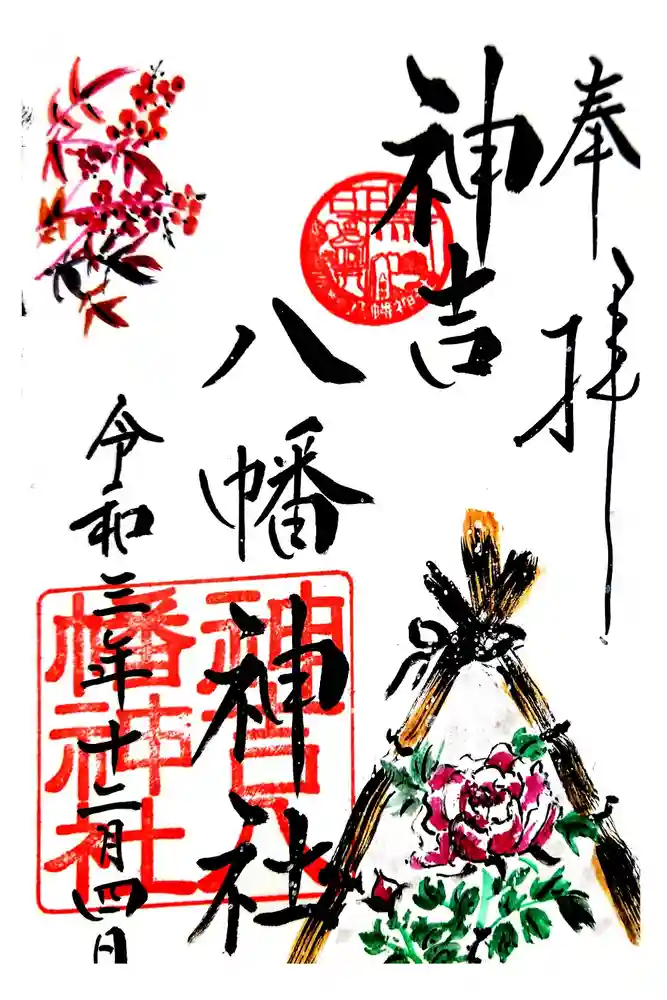 奉拝
神吉
八幡神社
令和三年十二月四日
神吉八
幡神社